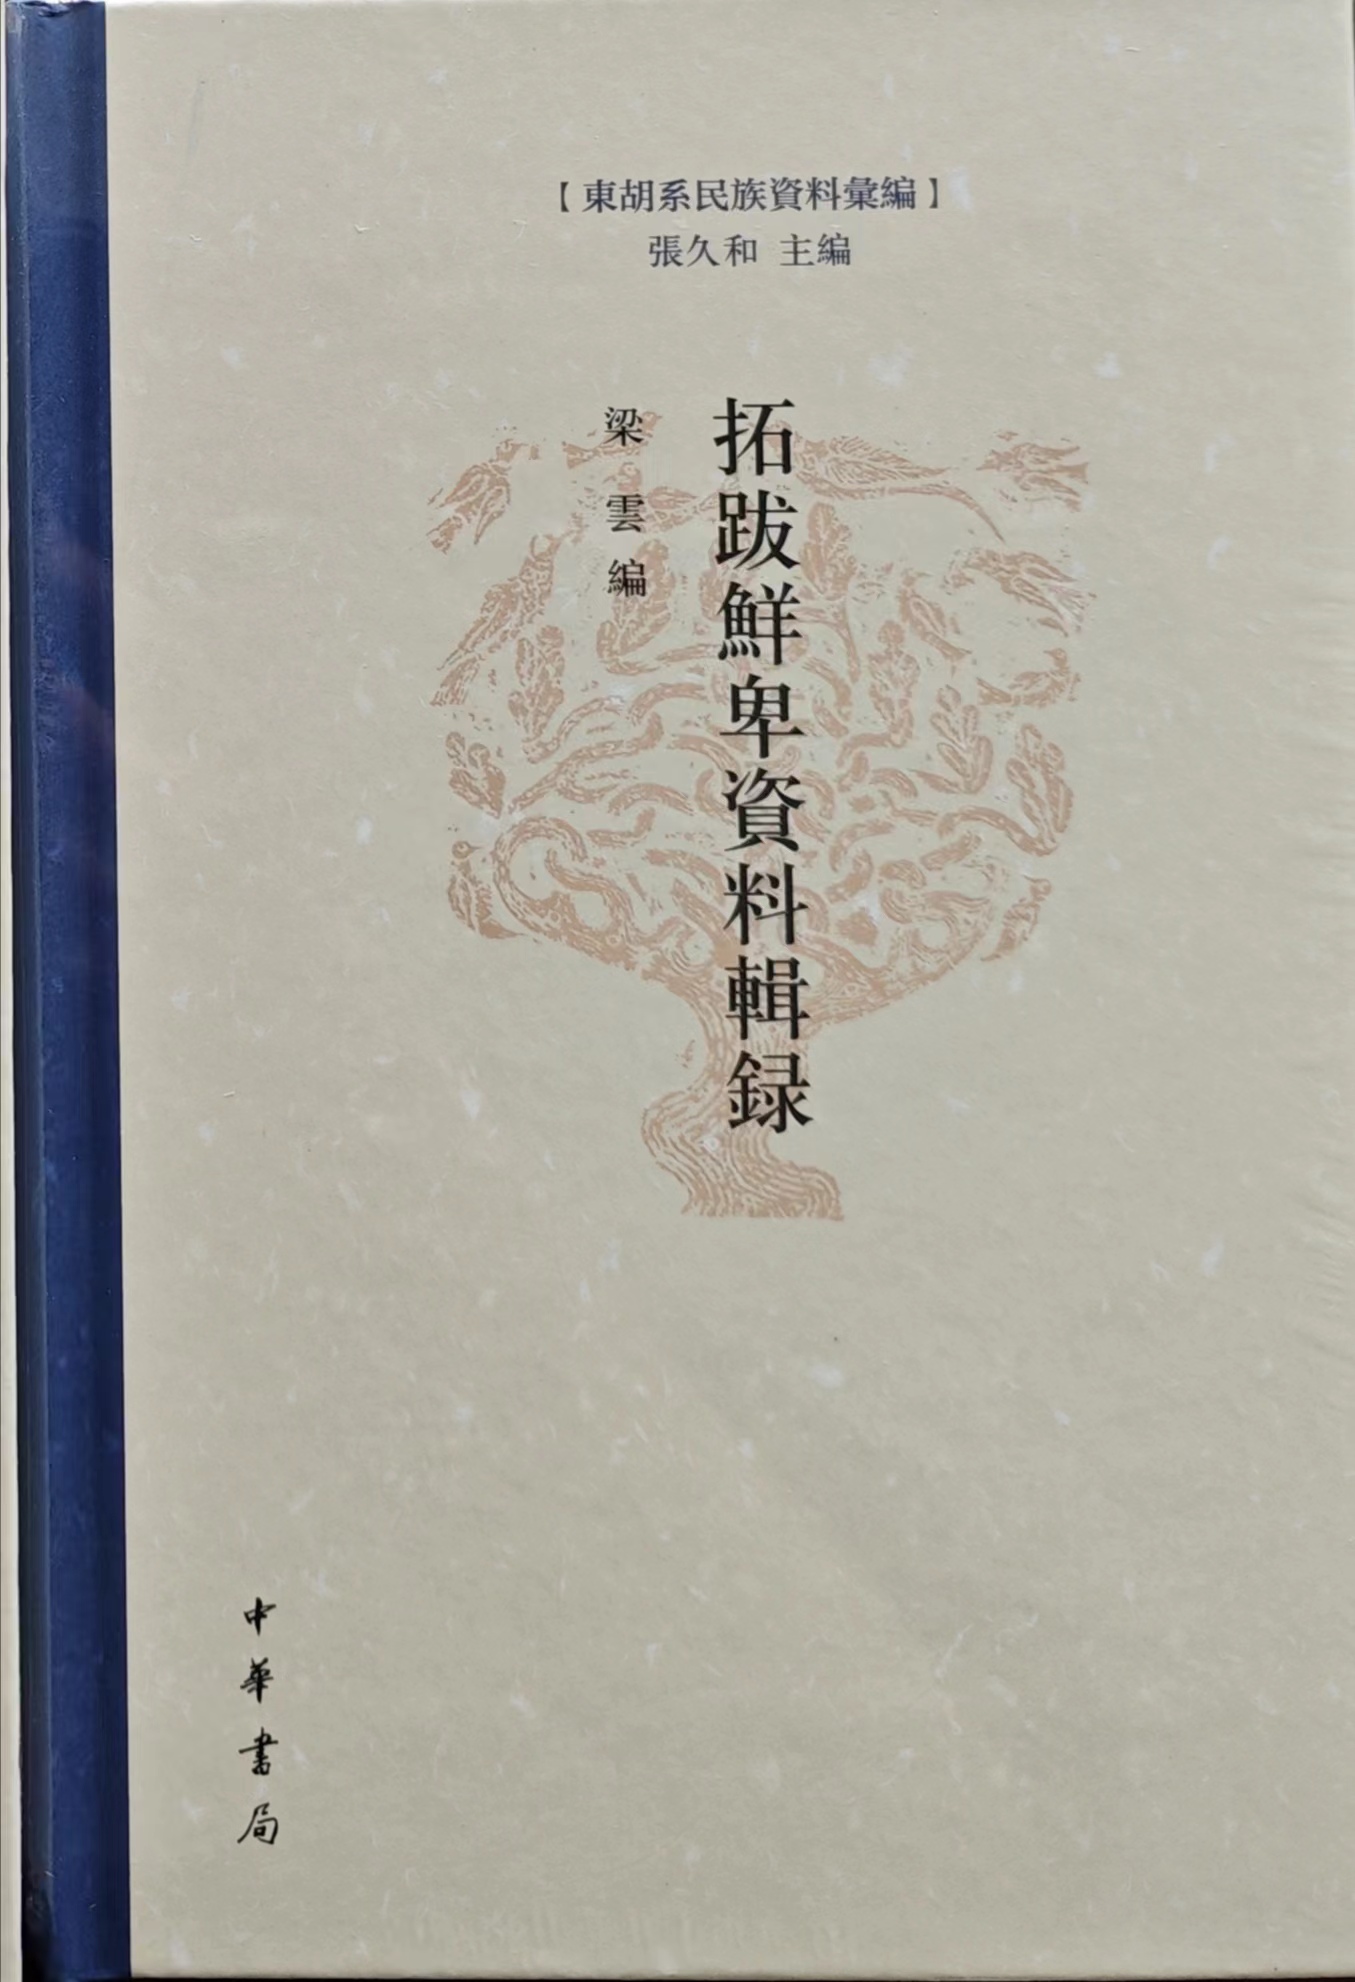 【東胡系民族資料彙編】
張久和 主編
拓跋鮮卑資料輯録
梁雲編
中華書局